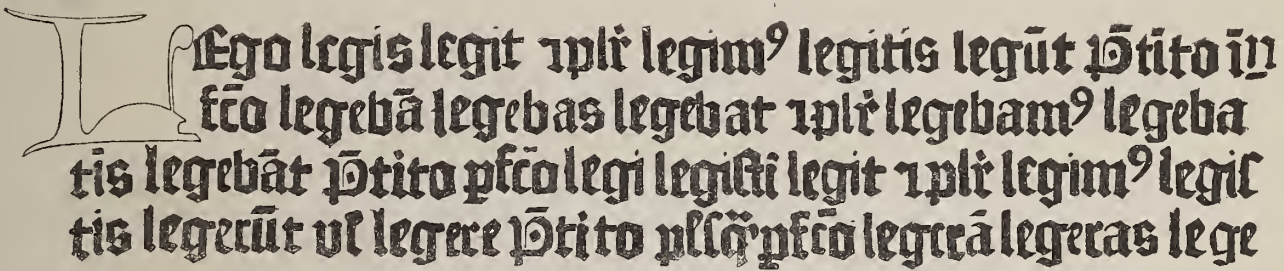 LEgo legis legit ⁊plr̄ legimꝰ legitis legūt P̄tito in
fc̄o legebā legebas legebat ⁊plr̄ legebamꝰ legeba
tis legebāt P̄tito pfc̄o legi legisti legit ⁊plr̄ legimꝰ legiſ
tis legerūt ul̄ legere P̄tito plſq̄ꝫpfc̄o legerā legeras lege